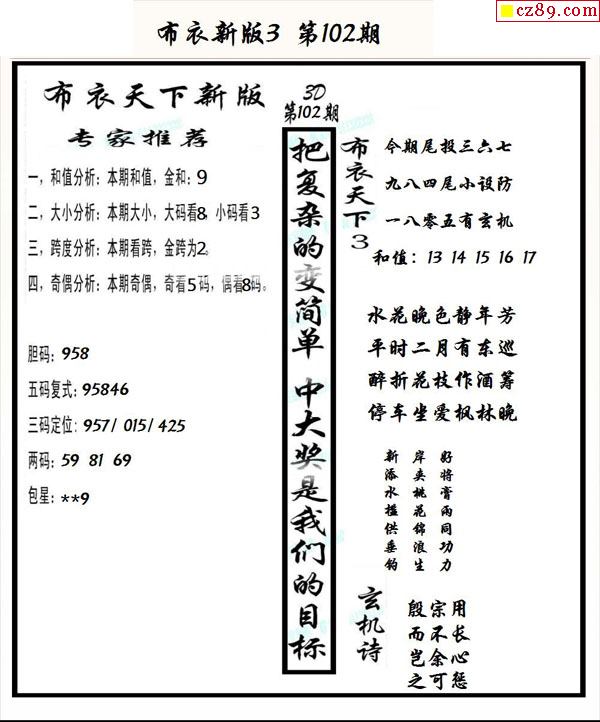 cz89.com
布衣新版3 第102期
布衣天下新版
专家推荐
一，和值分析：本期和值，金和：9
二，大小分析：本期大小，大码看8，小码看3
三，跨度分析：本期看跨，金跨为2。
四，奇偶分析：本期奇偶，奇看5码，偶看8码。
胆码：958
五码复式：95846
三码定位：957/ 015/ 425
两码：59 81 69
包星：**9
3D
第102期
把复杂的变简单 中大奖是我们的目标
布衣天下3
今期尾投三六七
九八四尾小设防
一八零五有玄机
和值：13 14 15 16 17
水花晚色静年芳
平时二月有东巡
醉折花枝作酒筹
停车坐爱枫林晚
好将膏雨同功力
岸夹桃花锦浪生
新添水槛供垂钓
玄机诗
殷宗用
而不长
岂余心
之可惩